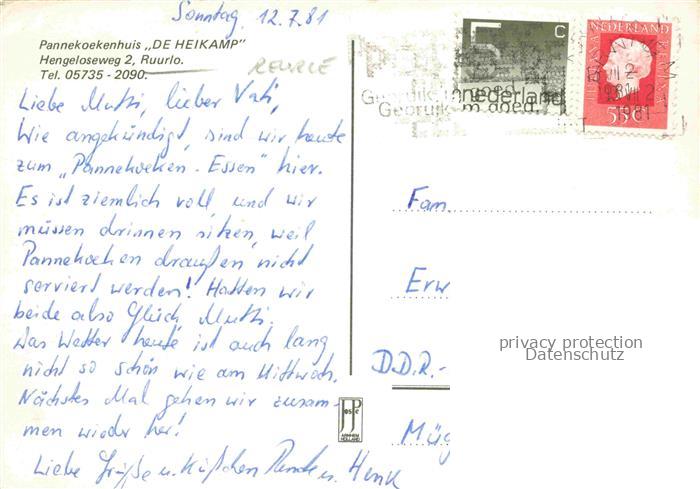 Sonntag, 12.7.81
Pannekoekenhuis „DE HEIKAMP"
Hengeloseweg 2, Ruurlo.
Tel. 05735 - 2090.
Liebe Mutti, lieber Vati,
Wie angekündigt, sind wir heute
zum „Pannekoeken-Essen" hier.
Es ist ziemlich voll, und wir
müssen drinnen sitzen, weil
Pannekoeken draußen nicht
serviert werden! Hatten wir
beide also Glück, Mutti.
Das Wetter heute ist auch lang
nicht so schön wie am Mittwoch.
Nächstes Mal gehen wir zusam-
men wieder her!
Liebe Grüße u. Küßchen u. Henk
JosPe
ARNHEM
HOLLAND
c
nederland
NEDERLAND
55c
1981
Fam.
Erw
D.D.R.-
Müg
privacy protection
Datenschutz